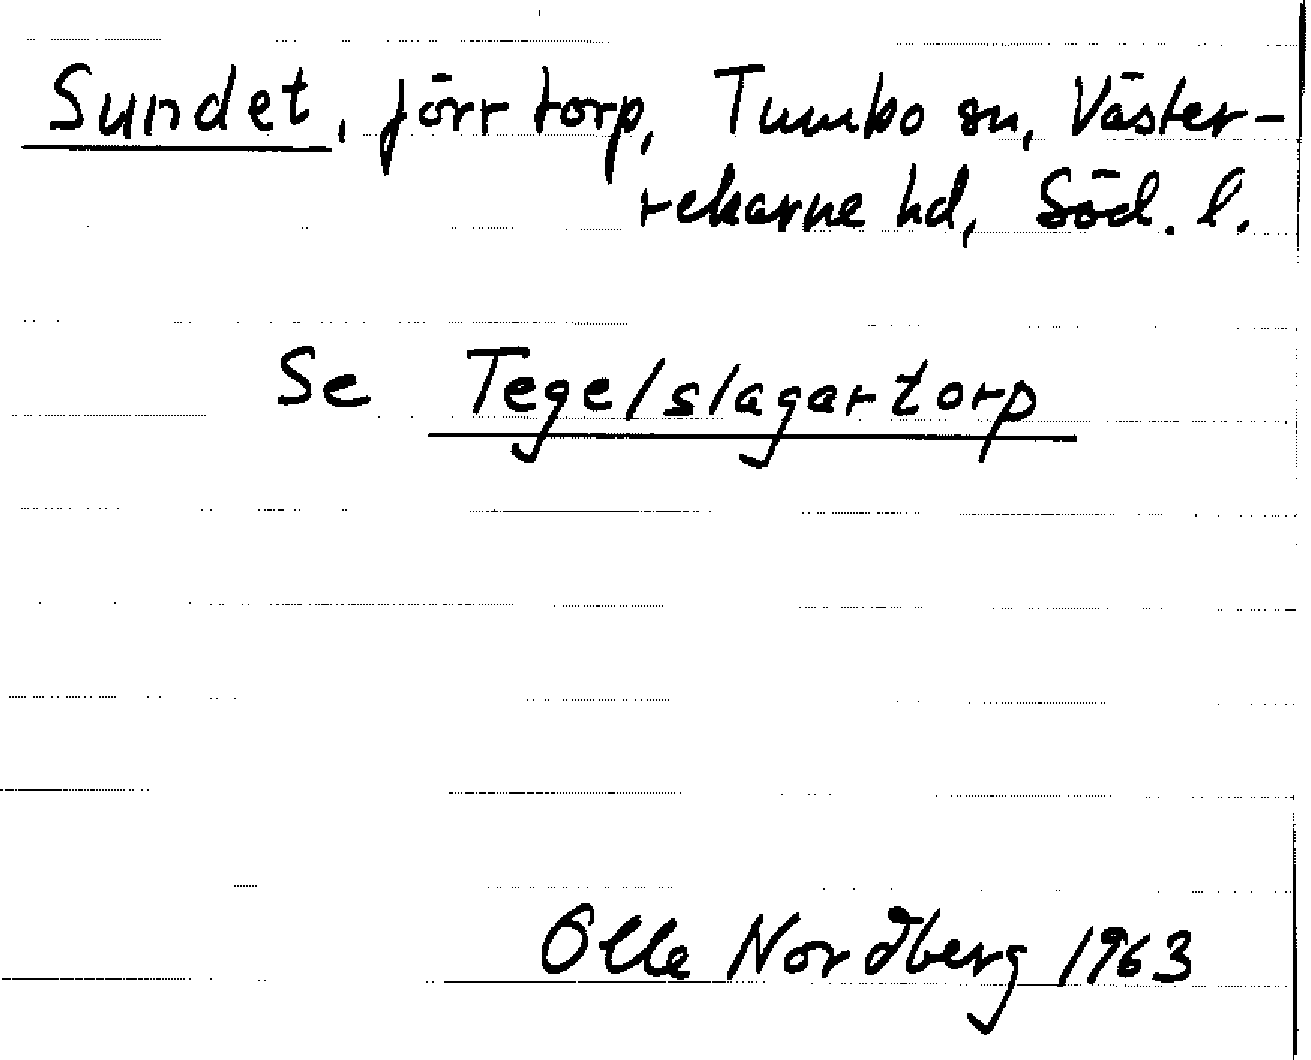 Sundet, förr torp, Tumbo sn, Väster-
rekarne hd, Söd. l.
Se Tegelslagartorp
Olle Nordberg 1963